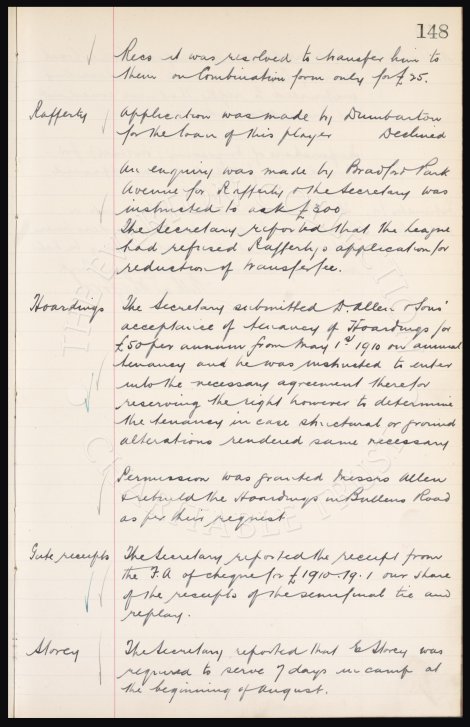 148
Recs it was resolved to transfer him to
them on Combination form only for £25.
Rafferty Application was made by Dumbarton
for the loan of this player Declined
An enquiry was made by Bradford Park
Avenue for Rafferty & the Secretary was
instructed to ask £300
The Secretary reported that the League
had refused Rafferty's application for
reduction of transfer fee.
Hoardings The Secretary submitted D. Allen & Sons'
acceptance of tenancy of Hoardings for
£50 per annum from May 1st 1910 on annual
tenancy and he was instructed to enter
into the necessary agreement therefor
reserving the right however to determine
the tenancy in case structural or ground
alterations rendered same necessary
Permission was granted Messrs Allen
to rebuild the Hoardings in Bullens Road
as per their request
Gate receipts The Secretary reported the receipt from
the F.A of cheque for £1910-19.1 our share
of the receipts of the semi final tie and
replay.
Storey The Secretary reported that E Storey was
required to serve 7 days in camp at
the beginning of August.